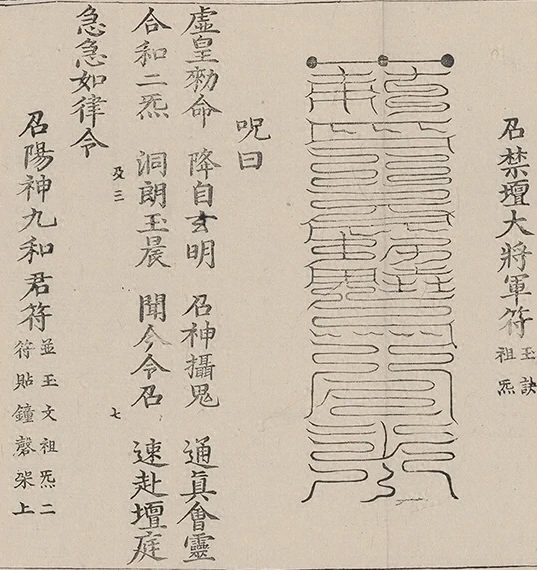 召禁壇大將軍符
玉訣
祖炁
呪曰
虛皇勑命　降自玄明　召神攝鬼　通眞會靈
合和二炁　洞朗玉晨　聞今令召　速赴壇庭
及三　七
急急如律令
召陽神九和君符
並玉文祖炁二
符貼鐘磬架上